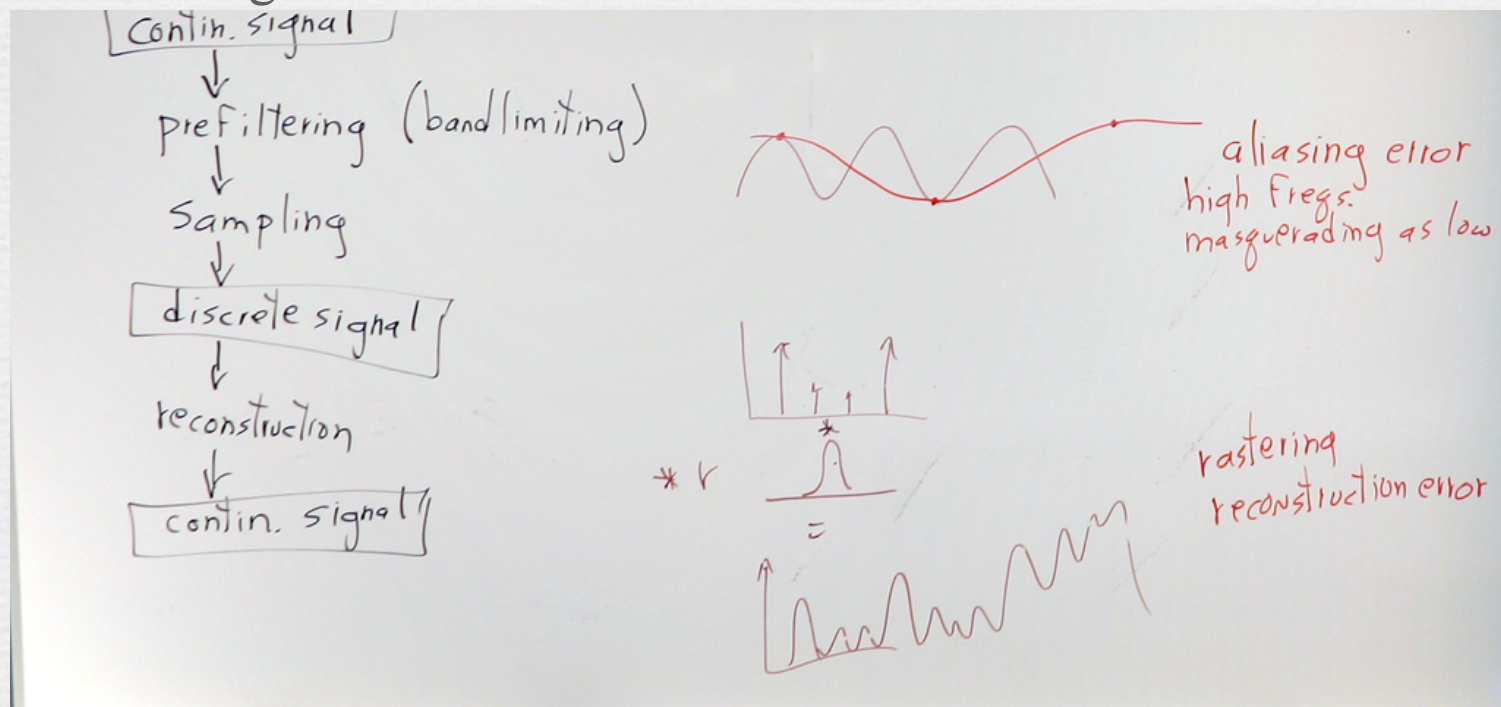 contin. signal
prefiltering (bandlimiting)
Sampling
discrete signal
reconstruction
contin. signal
aliasing error
high freqs.
masquerading as low
*
* r
=
rastering
reconstruction error